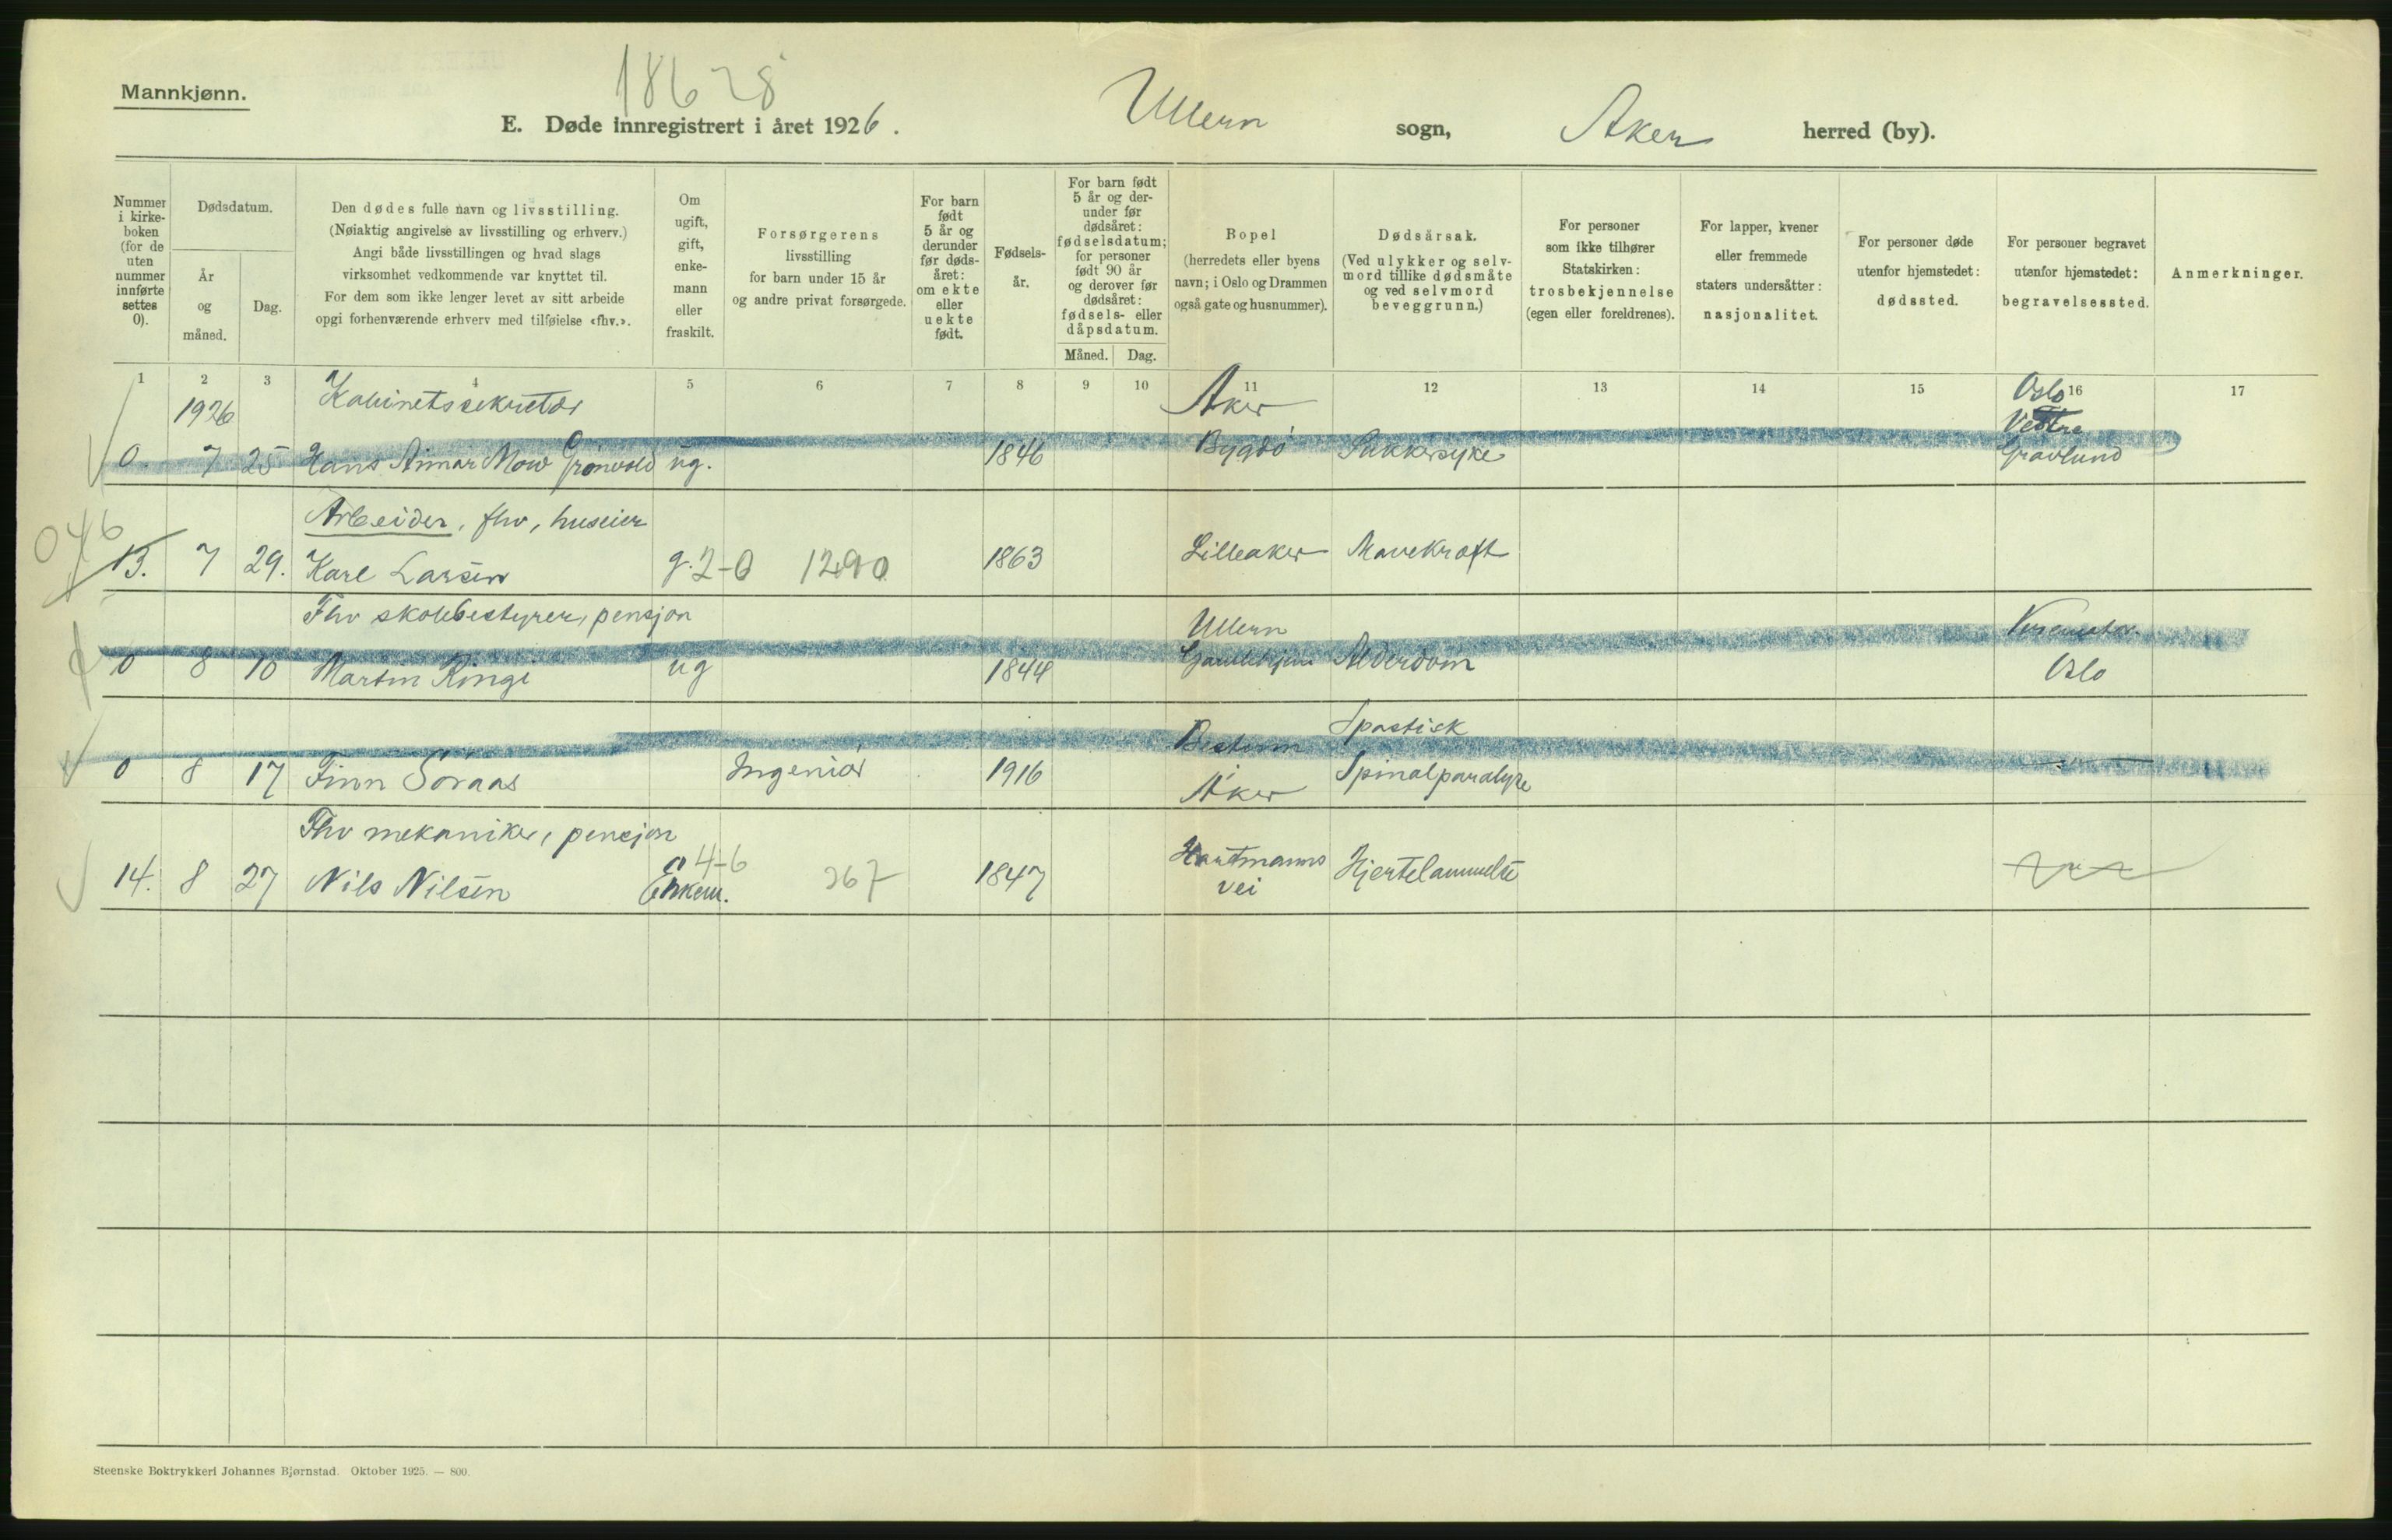 Mannkjønn.
18628
E. Døde innregistrert i året 1926. Ullern sogn, Aker herred (by).
Nummer i kirke- boken (for de uten nummer innførte settes 0).
Dødsdatum.
År og måned.
Dag.
Den dødes fulle navn og livsstilling.
(Nøiaktig angivelse av livsstilling og erhverv.)
Angi både livsstillingen og hvad slags
virksomhet vedkommende var knyttet til.
For dem som ikke lenger levet av sitt arbeide
opgi forhenværende erhverv med tilføielse «fhv.».
Om ugift, gift, enke- mann eller fraskilt.
Forsørgerens
livsstilling
for barn under 15 år
og andre privat forsørgede.
For barn født 5 år og derunder før døds- året: om ekte eller uekte født.
Fødsels- år.
For barn født 5 år og der- under før dødsåret: fødselsdatum; for personer født 90 år og derover før dødsåret: fødsels- eller dåpsdatum.
Måned. Dag.
Bopel
(herredets eller byens
navn; i Oslo og Drammen
også gate og husnummer).
Dødsårsak.
(Ved ulykker og selv-
mord tillike dødsmåte
og ved selvmord
beveggrunn.)
For personer
som ikke tilhører
Statskirken:
trosbekjennelse
(egen eller foreldrenes).
For lapper, kvener
eller fremmede
staters undersåtter:
nasjonalitet.
For personer døde
utenfor hjemstedet:
dødssted.
For personer begravet
utenfor hjemstedet:
begravelsessted.
Anmerkninger.
1 2 3 4 5 6 7 8 9 10 11 12 13 14 15 16 17
1926 Kabinetssekretær Aker Oslo
Vestre
0. 7 25 Hans Aimar Mow Grønvold ug. 1846 Bygdø Sukkersyke Gravlund
Arbeider, fhv, huseier
046
13. 7 29. Karl Larsen g. 2-0 1290 1863 Lilleaker Mavekræft
Fhv skolebestyrer, pensjon Ullern
0 8 10 Martin Ringi ug 1844 Gamlehjem Alderdom Oslo
Bestum Spastisk
0 8 17 Finn Søraas Ingeniør 1916 Aker Spinalparalyse
Fhv mekaniker, pensjon
4-6
14. 8 27 Nils Nilsen Enkem. 367 1847 Hartmanns vei Hjertelammelse
Steenske Boktrykkeri Johannes Bjørnstad. Oktober 1925. — 800.